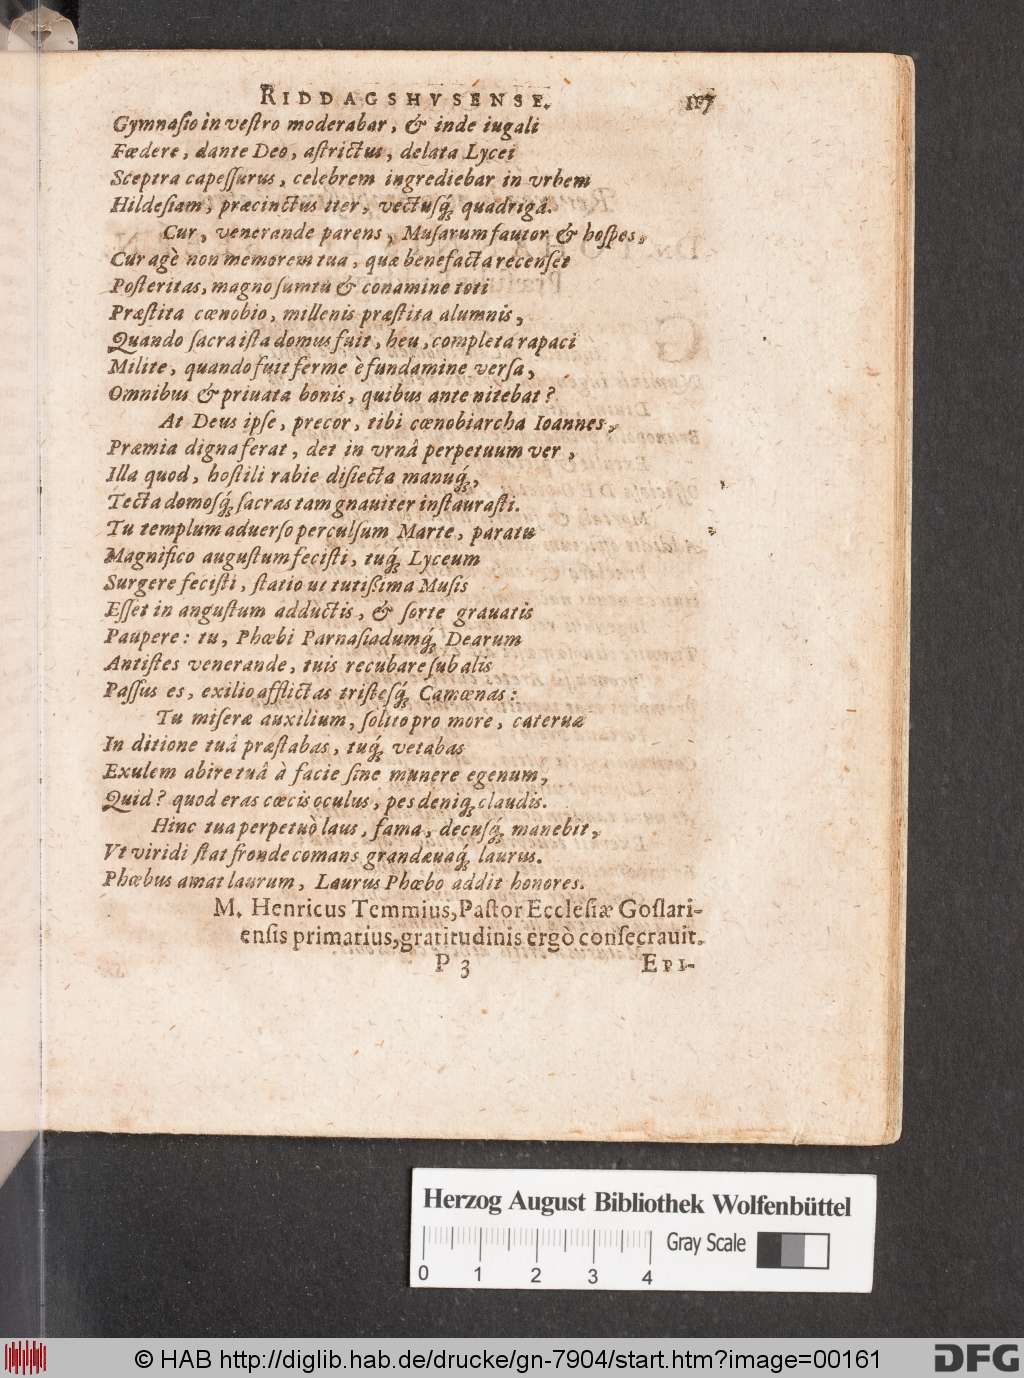 RIDDAGSHVSENSE. 117
Gymnasio in veſtro moderabar, & inde iugali
Fœdere, dante Deo, aſtrictus, delata Lycei
Sceptra capeſſurus, celebrem ingrediebar in vrbem
Hildeſiam, præcinctus iter, vectuſq́; quadrigâ.
Cur, venerande parens, Muſarum fautor & hoſpes,
Cur agè non memorem tua, quæ benefacta recenſet
Poſteritas, magno ſumtu & conamine toti
Præſtita cœnobio, millenis præſtita alumnis,
Quando ſacra iſta domus fuit, heu, completa rapaci
Milite, quando fuit ferme è fundamine verſa,
Omnibus & priuata bonis, quibus ante nitebat?
At Deus ipſe, precor, tibi cœnobiarcha Ioannes,
Præmia digna ferat, det in vrnâ perpetuum ver,
Illa quod, hoſtili rabie diſiecta manuq́;,
Tecta domoſq́; ſacras tam gnauiter inſtauraſti.
Tu templum aduerſo perculſum Marte, paratu
Magnifico auguſtum feciſti, tuq́; Lyceum
Surgere feciſti, ſtatio ut tutißima Muſis
Eſſet in anguſtum adductis, & ſorte grauatis
Paupere: tu, Phœbi Parnaſiadumq́; Dearum
Antiſtes venerande, tuis recubare ſub alis
Paſſus es, exilio afflictas triſteſq́; Camœnas:
Tu miſeræ auxilium, ſolito pro more, cateruæ
In ditione tuâ præſtabas, tuq́; vetabas
Exulem abire tuâ à facie ſine munere egenum,
Quid? quod eras cœcis oculus, pes deniq́; claudis.
Hinc tua perpetuò laus, fama, decuſq́; manebit,
Vt viridi ſtat fronde comans grandæuaq́; laurus.
Phœbus amat laurum, Laurus Phœbo addit honores.
M. Henricus Temmius, Paſtor Eccleſiæ Goſlari-
enſis primarius, gratitudinis ergò conſecrauit.
P 3 EPI-
Herzog August Bibliothek Wolfenbüttel
Gray Scale
0 1 2 3 4
© HAB http://diglib.hab.de/drucke/gn-7904/start.htm?image=00161 DFG